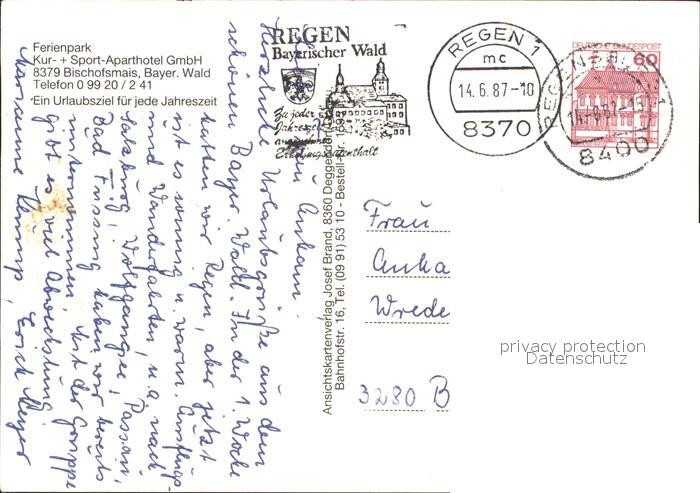 Ferienpark
Kur- + Sport-Aparthotel GmbH
8379 Bischofsmais, Bayer. Wald
Telefon 0 99 20 / 2 41
Ein Urlaubsziel für jede Jahreszeit
REGEN
Bayerischer Wald
Zu jeder
Jahreszeit
Erholungsaufenthalt
REGEN 1
mc
14.6.87-10
8370
DEUTSCHE BUNDESPOST
60
REGENSBURG 1
8400
Herzliche Urlaubsgrüße aus dem
schönen Bayer. Wald. In der 1. Woche
hatten wir Regen, aber jetzt
ist es sonnig u. warm. Ausflugs-
und Wanderfahrten, u.a nach
Salzburg, Wolfgangsee, Passau,
Bad Füssing haben wir bereits
mitgenommen. Mit der Gruppe
gibt es viel Abwechslung.
Marianne Erich Meyer
Ansichtskartenverlag Josef Brand, 8360 Deggendorf
Bahnhofstr. 16, Tel. (09 91) 53 10 - Bestell-Nr.
Frau
Anka
Wrede
3280 B
privacy protection
Datenschutz